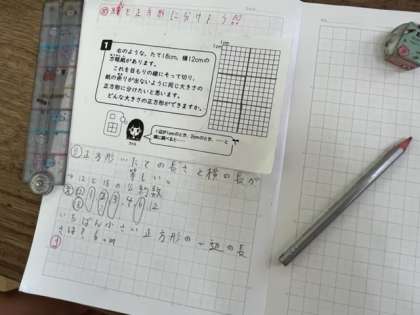 を正方形に分けよう!!
1cm
1cm
1
右のような、たて18cm、横12cmの
方眼紙があります。
これを目もりの線にそって切り、
紙の余りが出ないように同じ大きさの
正方形に分けたいと思います。
どんな大きさの正方形ができますか。
1辺が1cmのとき、2cmのとき、
正方形はたての長さと横の長さが
等しい。
12と18の公約数
① ② ③ 4 ⑥ 12
いちばん小さい正方形の一辺の長
さは?